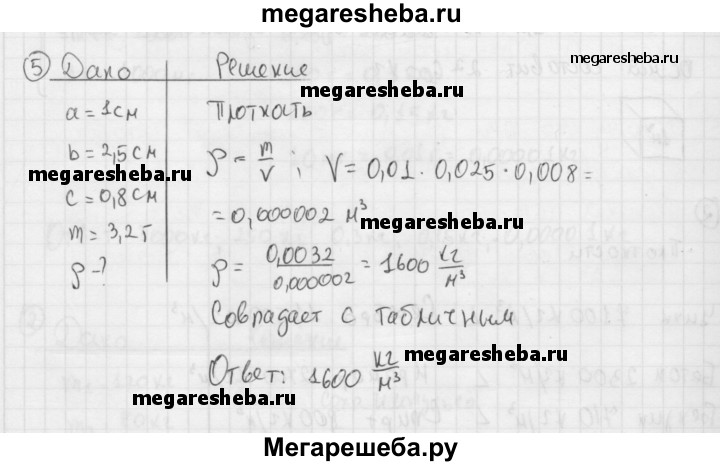 megaresheba.ru
megaresheba.ru
⑤ Дано Решение
megaresheba.ru
a = 1 см Плотность
b = 2,5 см ρ = m/V ; V = 0,01 · 0,025 · 0,008 =
megaresheba.ru
c = 0,8 см = 0,000002 м³
megaresheba.ru
m = 3,2 г
ρ - ? ρ = 0,0032/0,000002 = 1600 кг/м³
megaresheba.ru
Совпадает с табличным
megaresheba.ru
Ответ: 1600 кг/м³
megaresheba.ru
Мегарешеба.ру